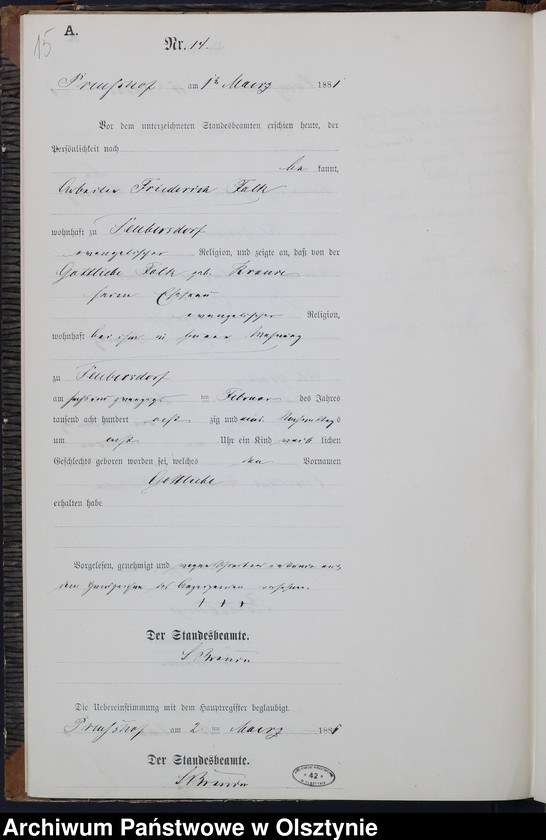 15
A.
Nr. 14.
Preußhof am 1ten Maerz 1881
Vor dem unterzeichneten Standesbeamten erschien heute, der
Persönlichkeit nach
be kannt,
Arbeiter Friederich Falk
wohnhaft zu Neubersdorf
evangelischer Religion, und zeigte an, daß von der
Gottliebe Falk geb. Krause
seiner Ehefrau
evangelischer Religion,
wohnhaft bei ihm in seiner Wohnung
zu Neubersdorf
am ten Februar des Jahres
tausend acht hundert acht zig und eins Nachmittags
um acht Uhr ein Kind weib lichen
Geschlechts geboren worden sei, welches den Vornamen
Gottliebe
erhalten habe
Vorgelesen, genehmigt und wegen
dem Handzeichen des versehen.
† † †
Der Standesbeamte.
Die Uebereinstimmung mit dem Hauptregister beglaubigt
Preußhof am 2 ten Maerz 1881
Der Standesbeamte.
42
Archiwum Państwowe w Olsztynie